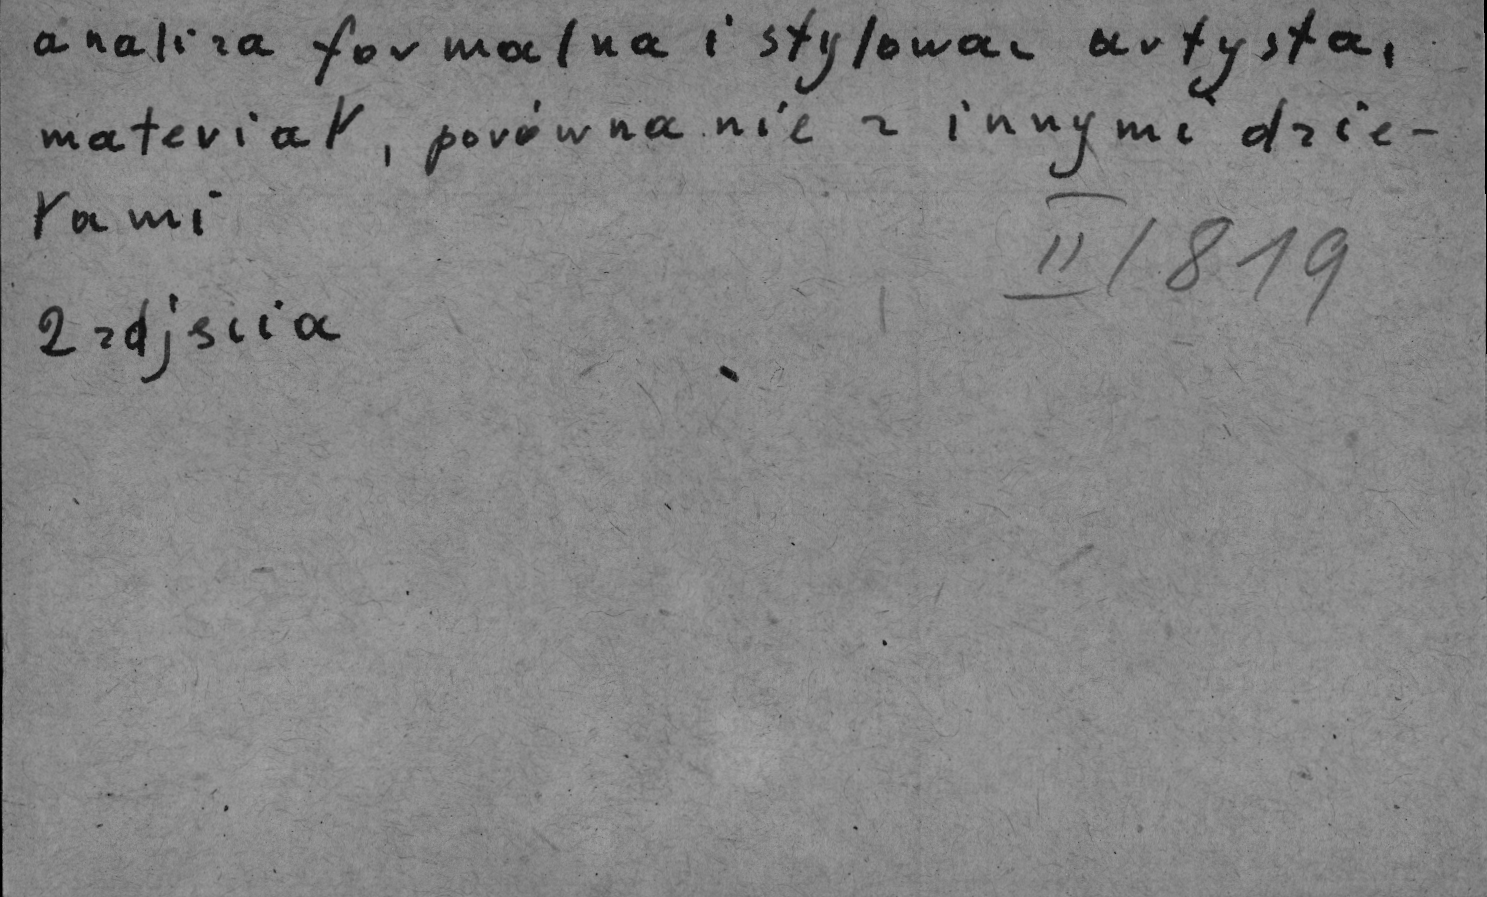 analiza formalna i stylowa, artysta,
materiał, porównanie z innymi dzie-
łami
II/819
2 zdjscia